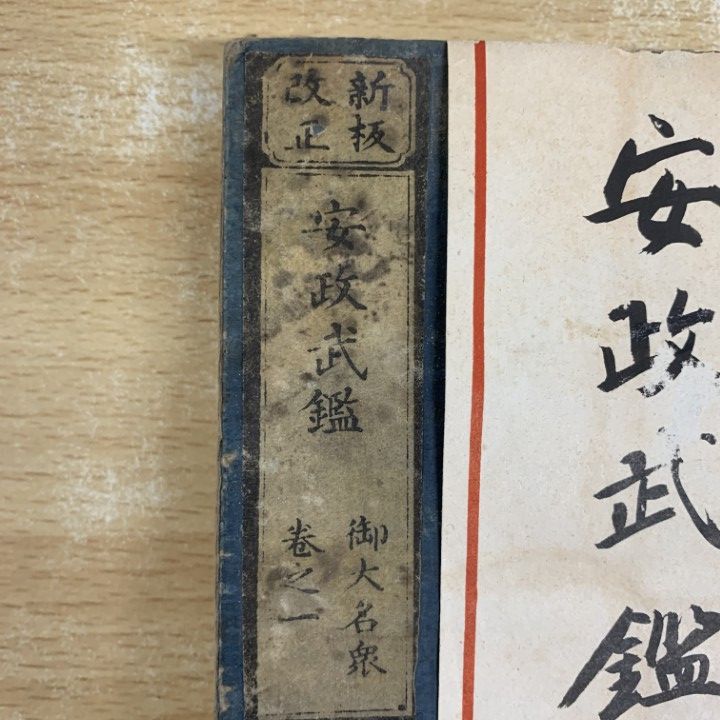 新板
改正
安政武鑑
御大名衆
卷之一
安政武鑑